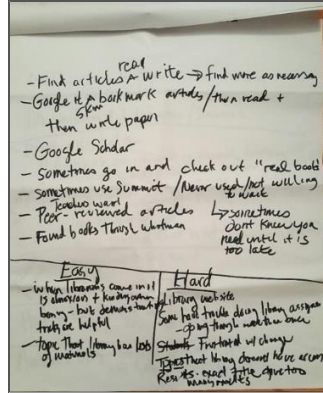 read
- Find articles ^ write → find more as necessary
- Google it ^ bookmark articles / then read +
skim
then write paper
- Google Scholar
- Sometimes go in and check out "real books"
- Sometimes use Summit / Never used / not willing to wait
Teachers want
- Peer-reviewed articles
↳ sometimes don't know you need until it is too late
- Found books through
Easy
- When librarians come in it is
boring - but demonstrating
tools are helpful
- topic that library has lots
of materials
Hard
Library website
Some had trouble doing library
- going through more than once
Students Frustrated w/ change
that library doesn't have access
too
many results